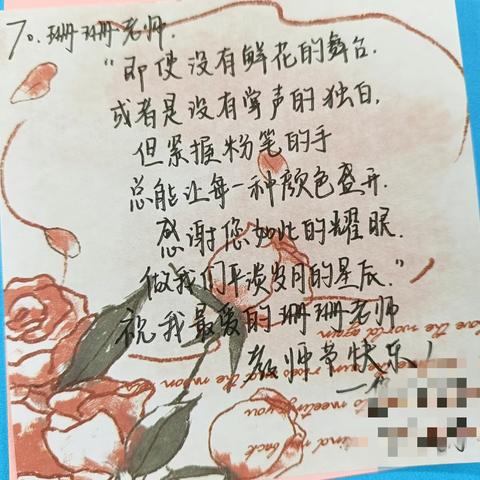 To.珊珊老师.
“即使没有鲜花的舞台.
或者是没有掌声的独白,
但紧握粉笔的手
总能让每一种颜色盛开.
感谢您如此的耀眼.
做我们平淡岁月的星辰.”
祝我最爱的珊珊老师
教师节快乐!